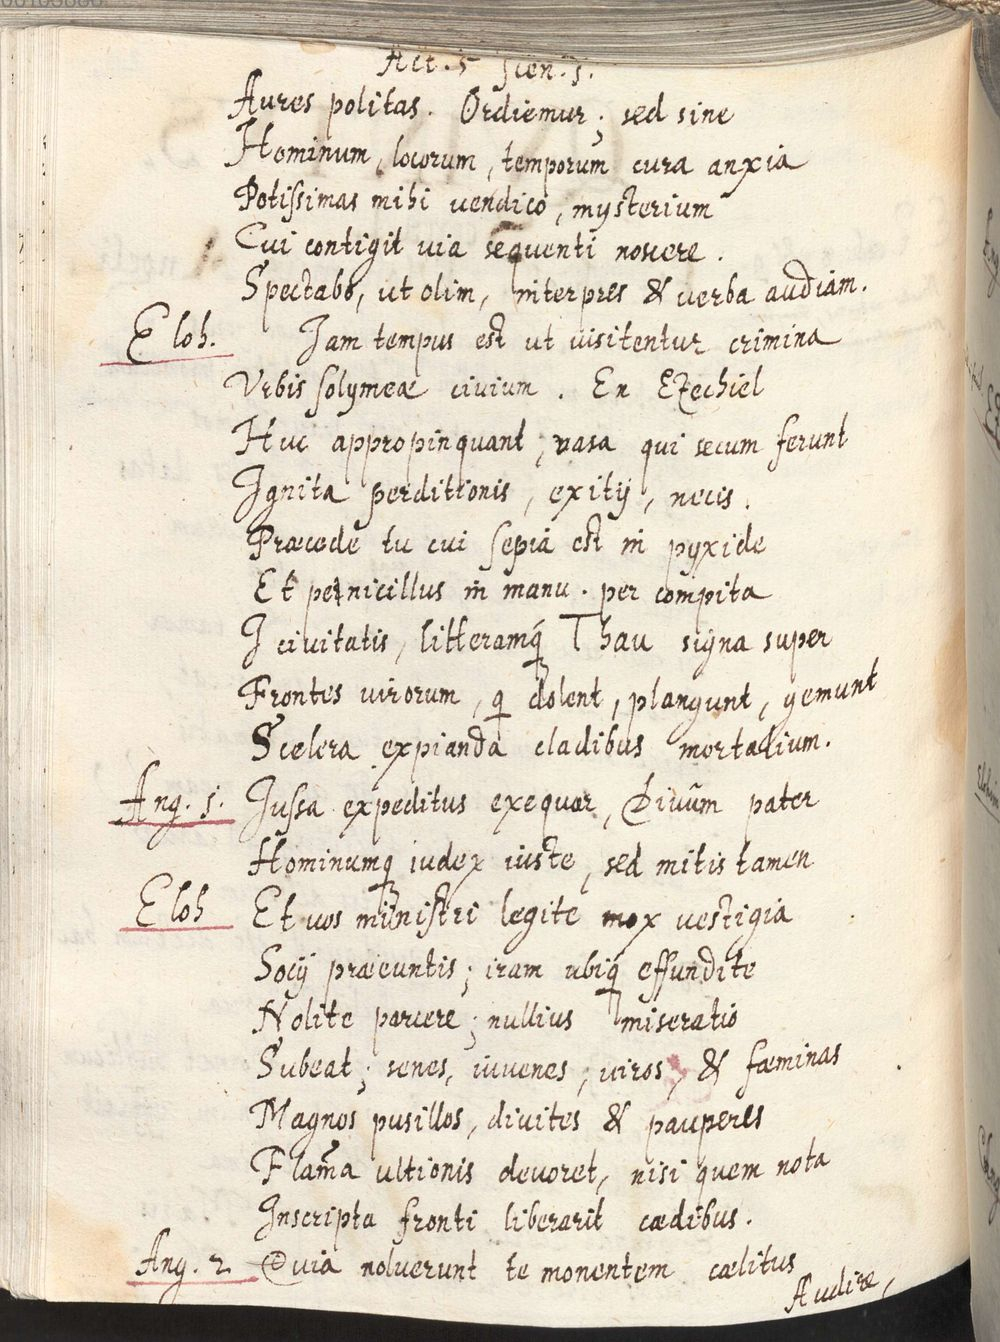 Act. 5 scen. 1.
Aures politas. Ordiemur; sed sine
Hominum, locorum, temporum cura anxia
Potissimas mihi vendico, mysterium
Cui contigit via sequenti noscere.
Spectabo, ut olim, interpres & verba audiam.
Eloh. Jam tempus est ut visitentur crimina
Urbis solymeæ civium. En Ezechiel
Huc appropinquant, vasa qui secum ferunt
Ignita perditionis, exitij, necis.
Præcede tu cui sepia est in pyxide
Et penicillus in manu. per compita
I civitatis, litteramq́ Thau signa super
Frontes virorum, q dolent, plangunt, gemunt
Scelera expianda cladibus mortalium.
Ang. 1. Jussa expeditus exequar, Divũm pater
Hominumq́ iudex iuste, sed mitis tamen
Eloh Et vos ministri legite mox vestigia
Socij præeuntis; iram ubiq́ effundite
Nolite parcere; nullius miseratio
Subeat; senes, iuvenes, viros, & fæminas
Magnos pusillos, divites & pauperes
Flam̃a ultionis devoret, nisi quem nota
Inscripta fronti liberarit cædibus.
Ang. 2 Quia noluerunt te monentem cælitus
Audire,